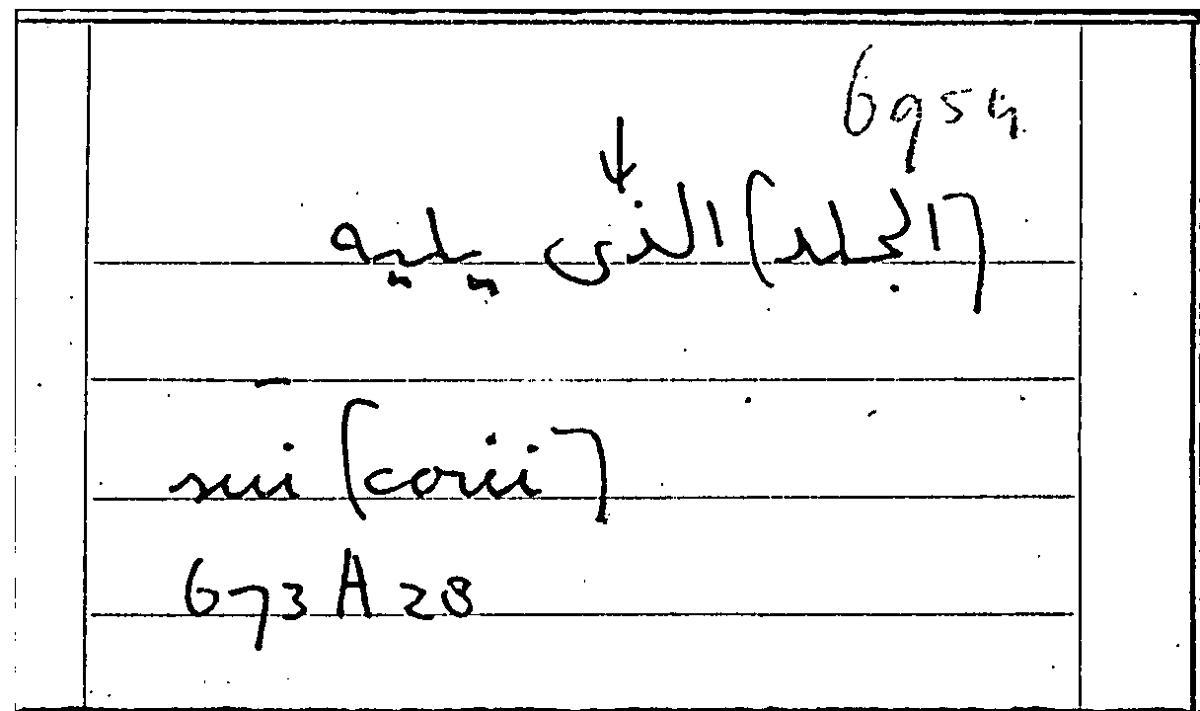 6954
↓
[الجلد] الذى يليه
sui [corii]
673 A 28